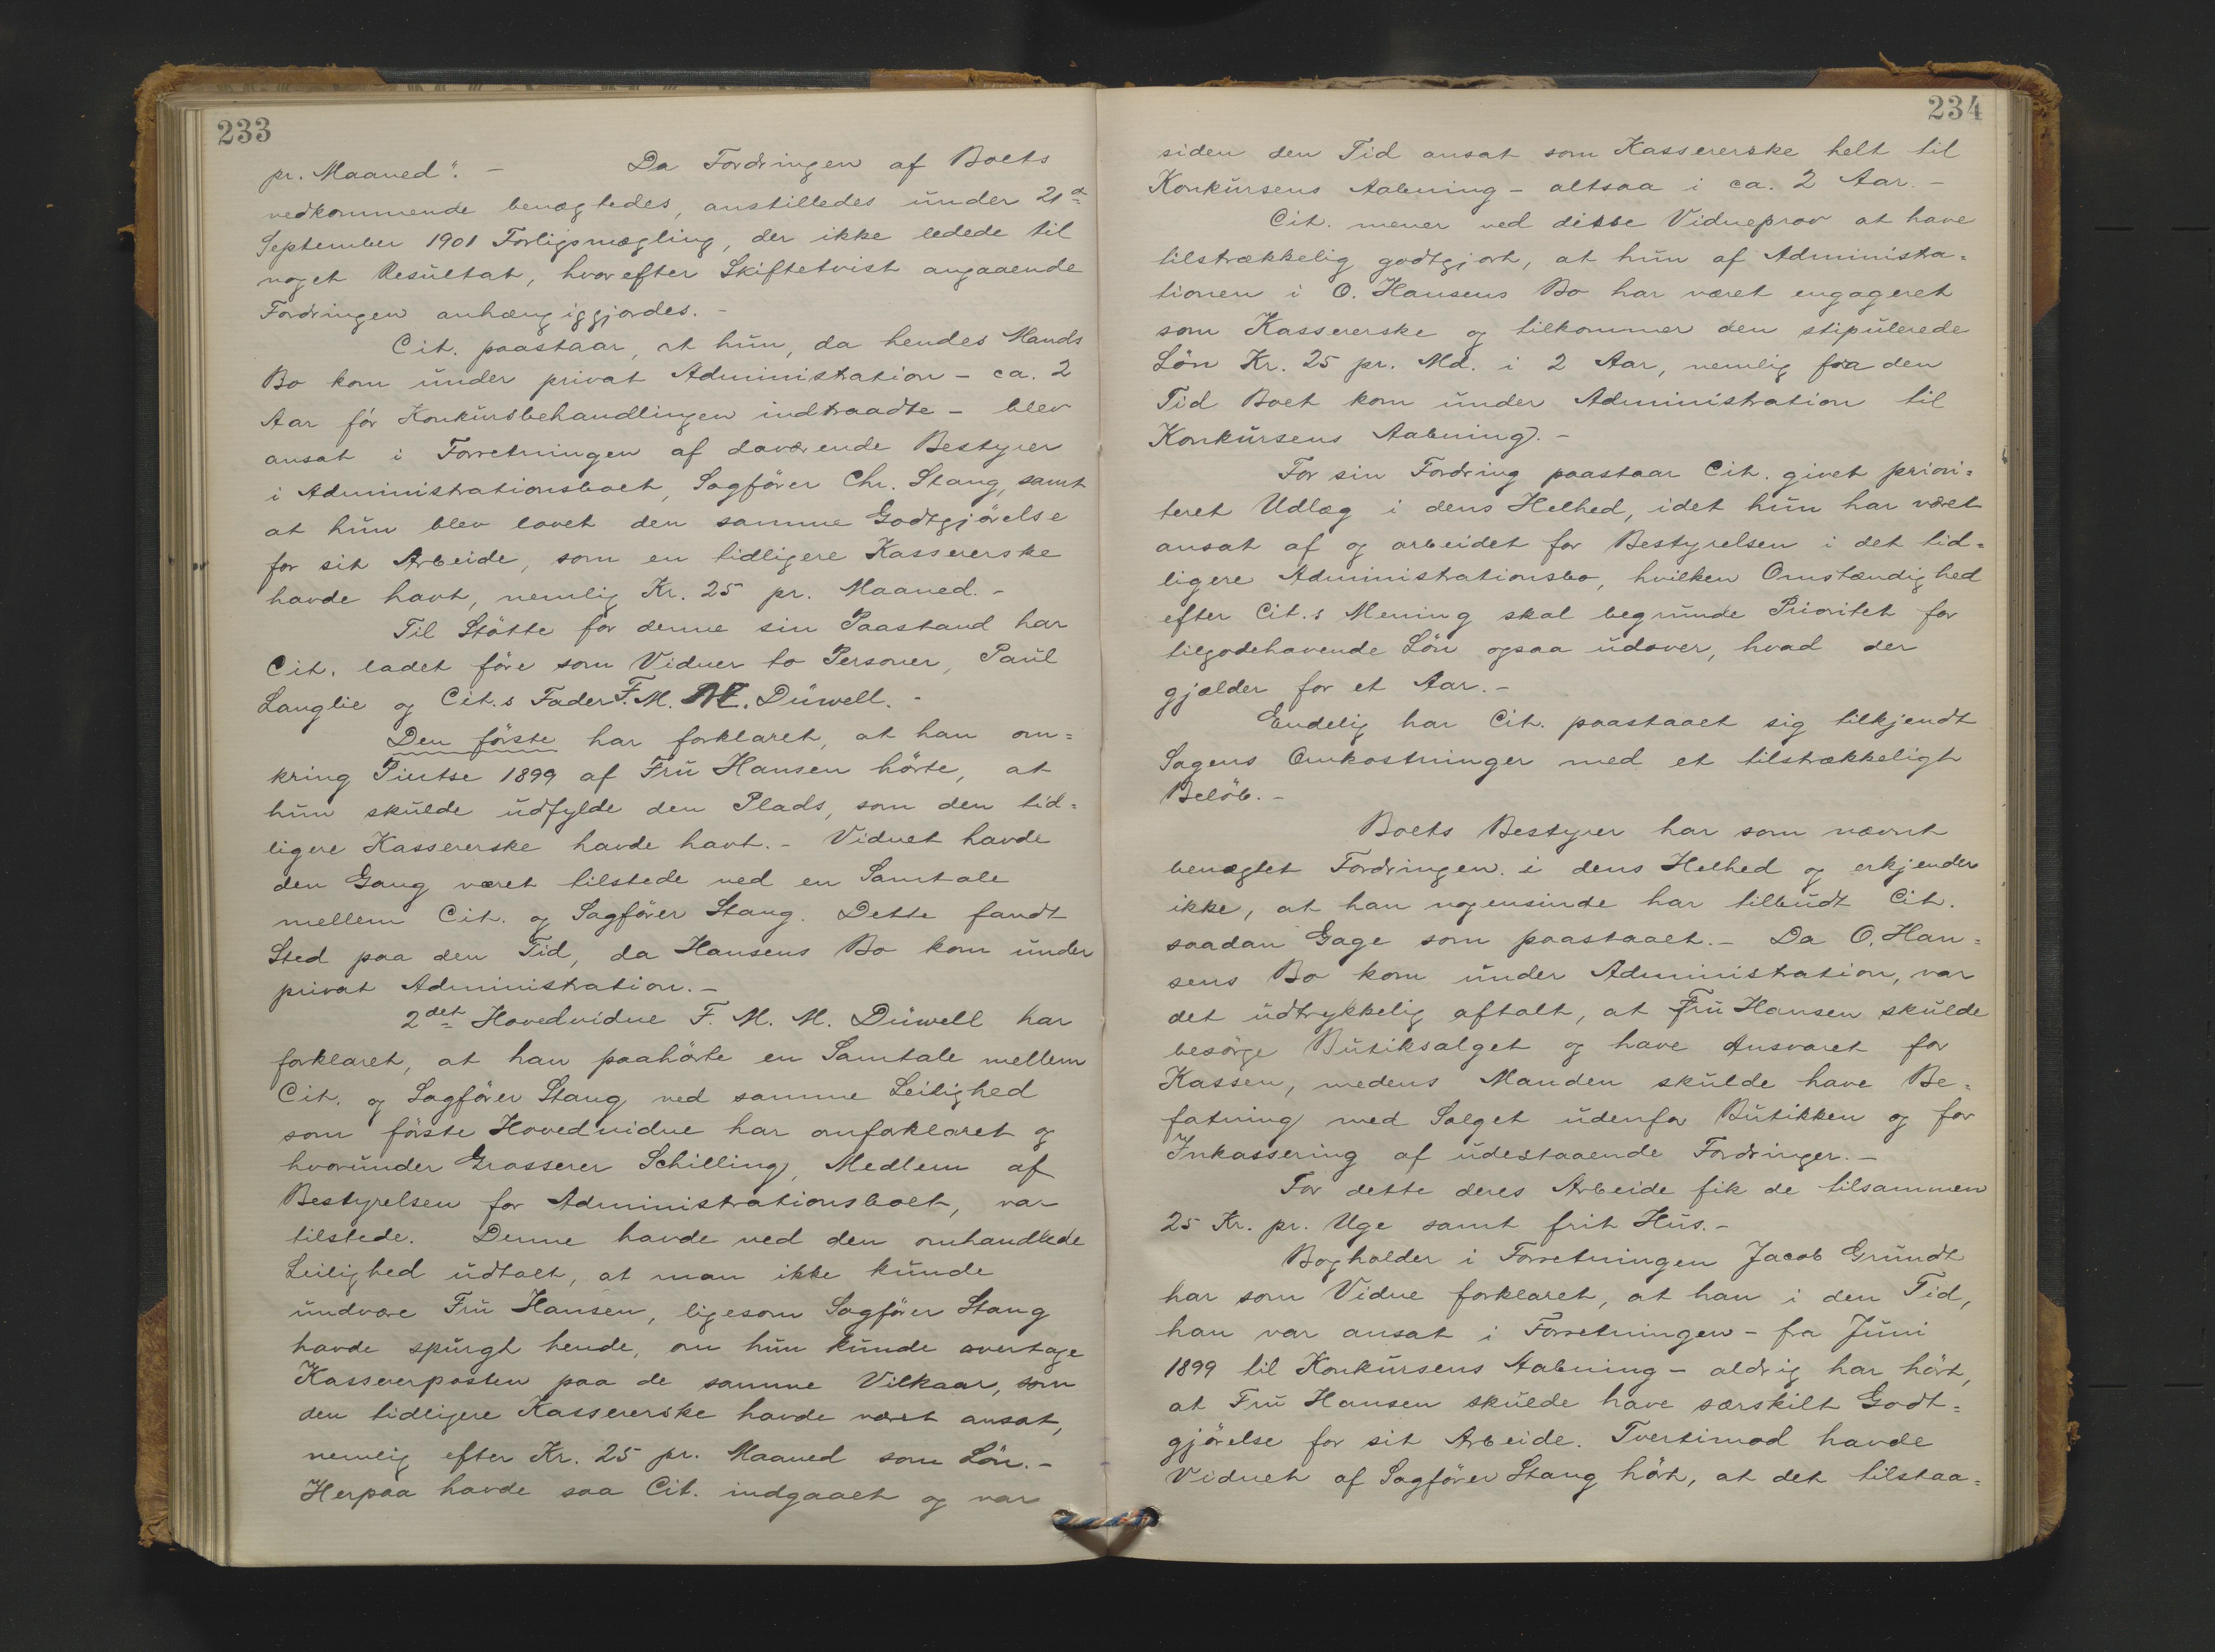 233
pr. Maaned". - Da Fordringen af Boets
vedkommende benægtedes, anstilledes under 21d
September 1901 Forligsmægling, der ikke ledede til
noget Resultat, hvorefter Skiftetvist angaaende
Fordringen anhængiggjordes. -
Cit. paastaar, at hun, da hendes Mands
Bo kom under privat Administration - ca. 2
Aar før Konkursbehandlingen indtraadte - blev
ansat i Forretningen af daværende Bestyrer
i Administrationsboet, Sagfører Chr. Stang, samt
at hun blev lovet den samme Godtgjörelse
for sit Arbeide, som en tidligere Kassererske
havde havt, nemlig Kr. 25 pr. Maaned. -
Til Stötte for denne sin Paastand har
Cit. ladet före som Vidner to Personer, Paul
Langlie og Cit.s Fader F. M. M. Düwell. -
Den förste har forklaret, at han om=
kring Pintse 1899 af Fru Hansen hörte, at
hun skulde udfylde den Plads, som den tid=
ligere Kassererske havde havt. - Vidnet havde
den Gang været tilstede ved en Samtale
mellem Cit. og Sagförer Stang. Dette fandt
Sted paa den Tid, da Hansens Bo kom under
privat Administration. -
2det Hovedvidne F. M. M. Düwell har
forklaret, at han paahörte en Samtale mellem
Cit. og Sagförer Stang ved samme Leilighed
som förste Hovedvidne har omforklaret og
hvorunder Grosserer Schilling, Medlem af
Bestyrelsen for Administrationsboet, var
tilstede. Denne havde ved den omhandlede
Leilighed udtalt, at man ikke kunde
undvære Fru Hansen, ligesom Sagförer Stang
havde spurgt hende, om hun kunde overtage
Kassererposten paa de samme Vilkaar, som
den tidligere Kassererske havde været ansat,
nemlig efter Kr. 25 pr. Maaned som Lön. -
Herpaa havde saa Cit. indgaaet og var
234
siden den Tid ansat som Kassererske helt til
Konkursens Aabning - altsaa i ca. 2 Aar. -
Cit. mener ved disse Vidneprov at have
tilstrækkelig godtgjort, at hun af Administra=
tionen i O. Hansens Bo har været engageret
som Kassererske og tilkommer den stipulerede
Lön Kr. 25 pr. Md. i 2 Aar, nemlig fra den
Tid Boet kom under Administration til
Konkursens Aabning. -
For sin Fordring paastaar Cit. givet priori=
teret Udlæg i dens Helhed, idet hun har været
ansat af og arbeidet for Bestyrelsen i det tid=
ligere Administrationsbo, hvilken Omstændighed
efter Cit.s Mening skal begrunde Prioritet for
tilgodehavende Lön ogsaa udover, hvad der
gjælder for et Aar. -
Endelig har Cit. paastaaet sig tilkjendt
Sagens Omkostninger med et tilstrækkeligt
Belöb. -
Boets Bestyrer har som nævnt
benægtet Fordringen i dens Helhed og erkjender
ikke, at han nogensinde har tilbudt Cit.
saadan Gage som paastaaet. - Da O. Han=
sens Bo kom under Administration, var
det udtrykkelig aftalt, at Fru Hansen skulde
besörge Butiksalget og have Ansvaret for
Kassen, medens Manden skulde have Be=
fatning med Salget udenfor Butikken og for
Inkassering af udestaaende Fordringer. -
For dette deres Arbeide fik de tilsammen
25 Kr. pr. Uge samt frit Hus. -
Bogholder i Forretningen Jacob Grundt
har som Vidne forklaret, at han i den Tid,
han var ansat i Forretningen - fra Juni
1899 til Konkursens Aabning - aldrig har hört,
at Fru Hansen skulde have særskilt Godt=
gjörelse for sit Arbeide. Tvertimod havde
Vidnet af Sagförer Stang hört, at det tilstaa=